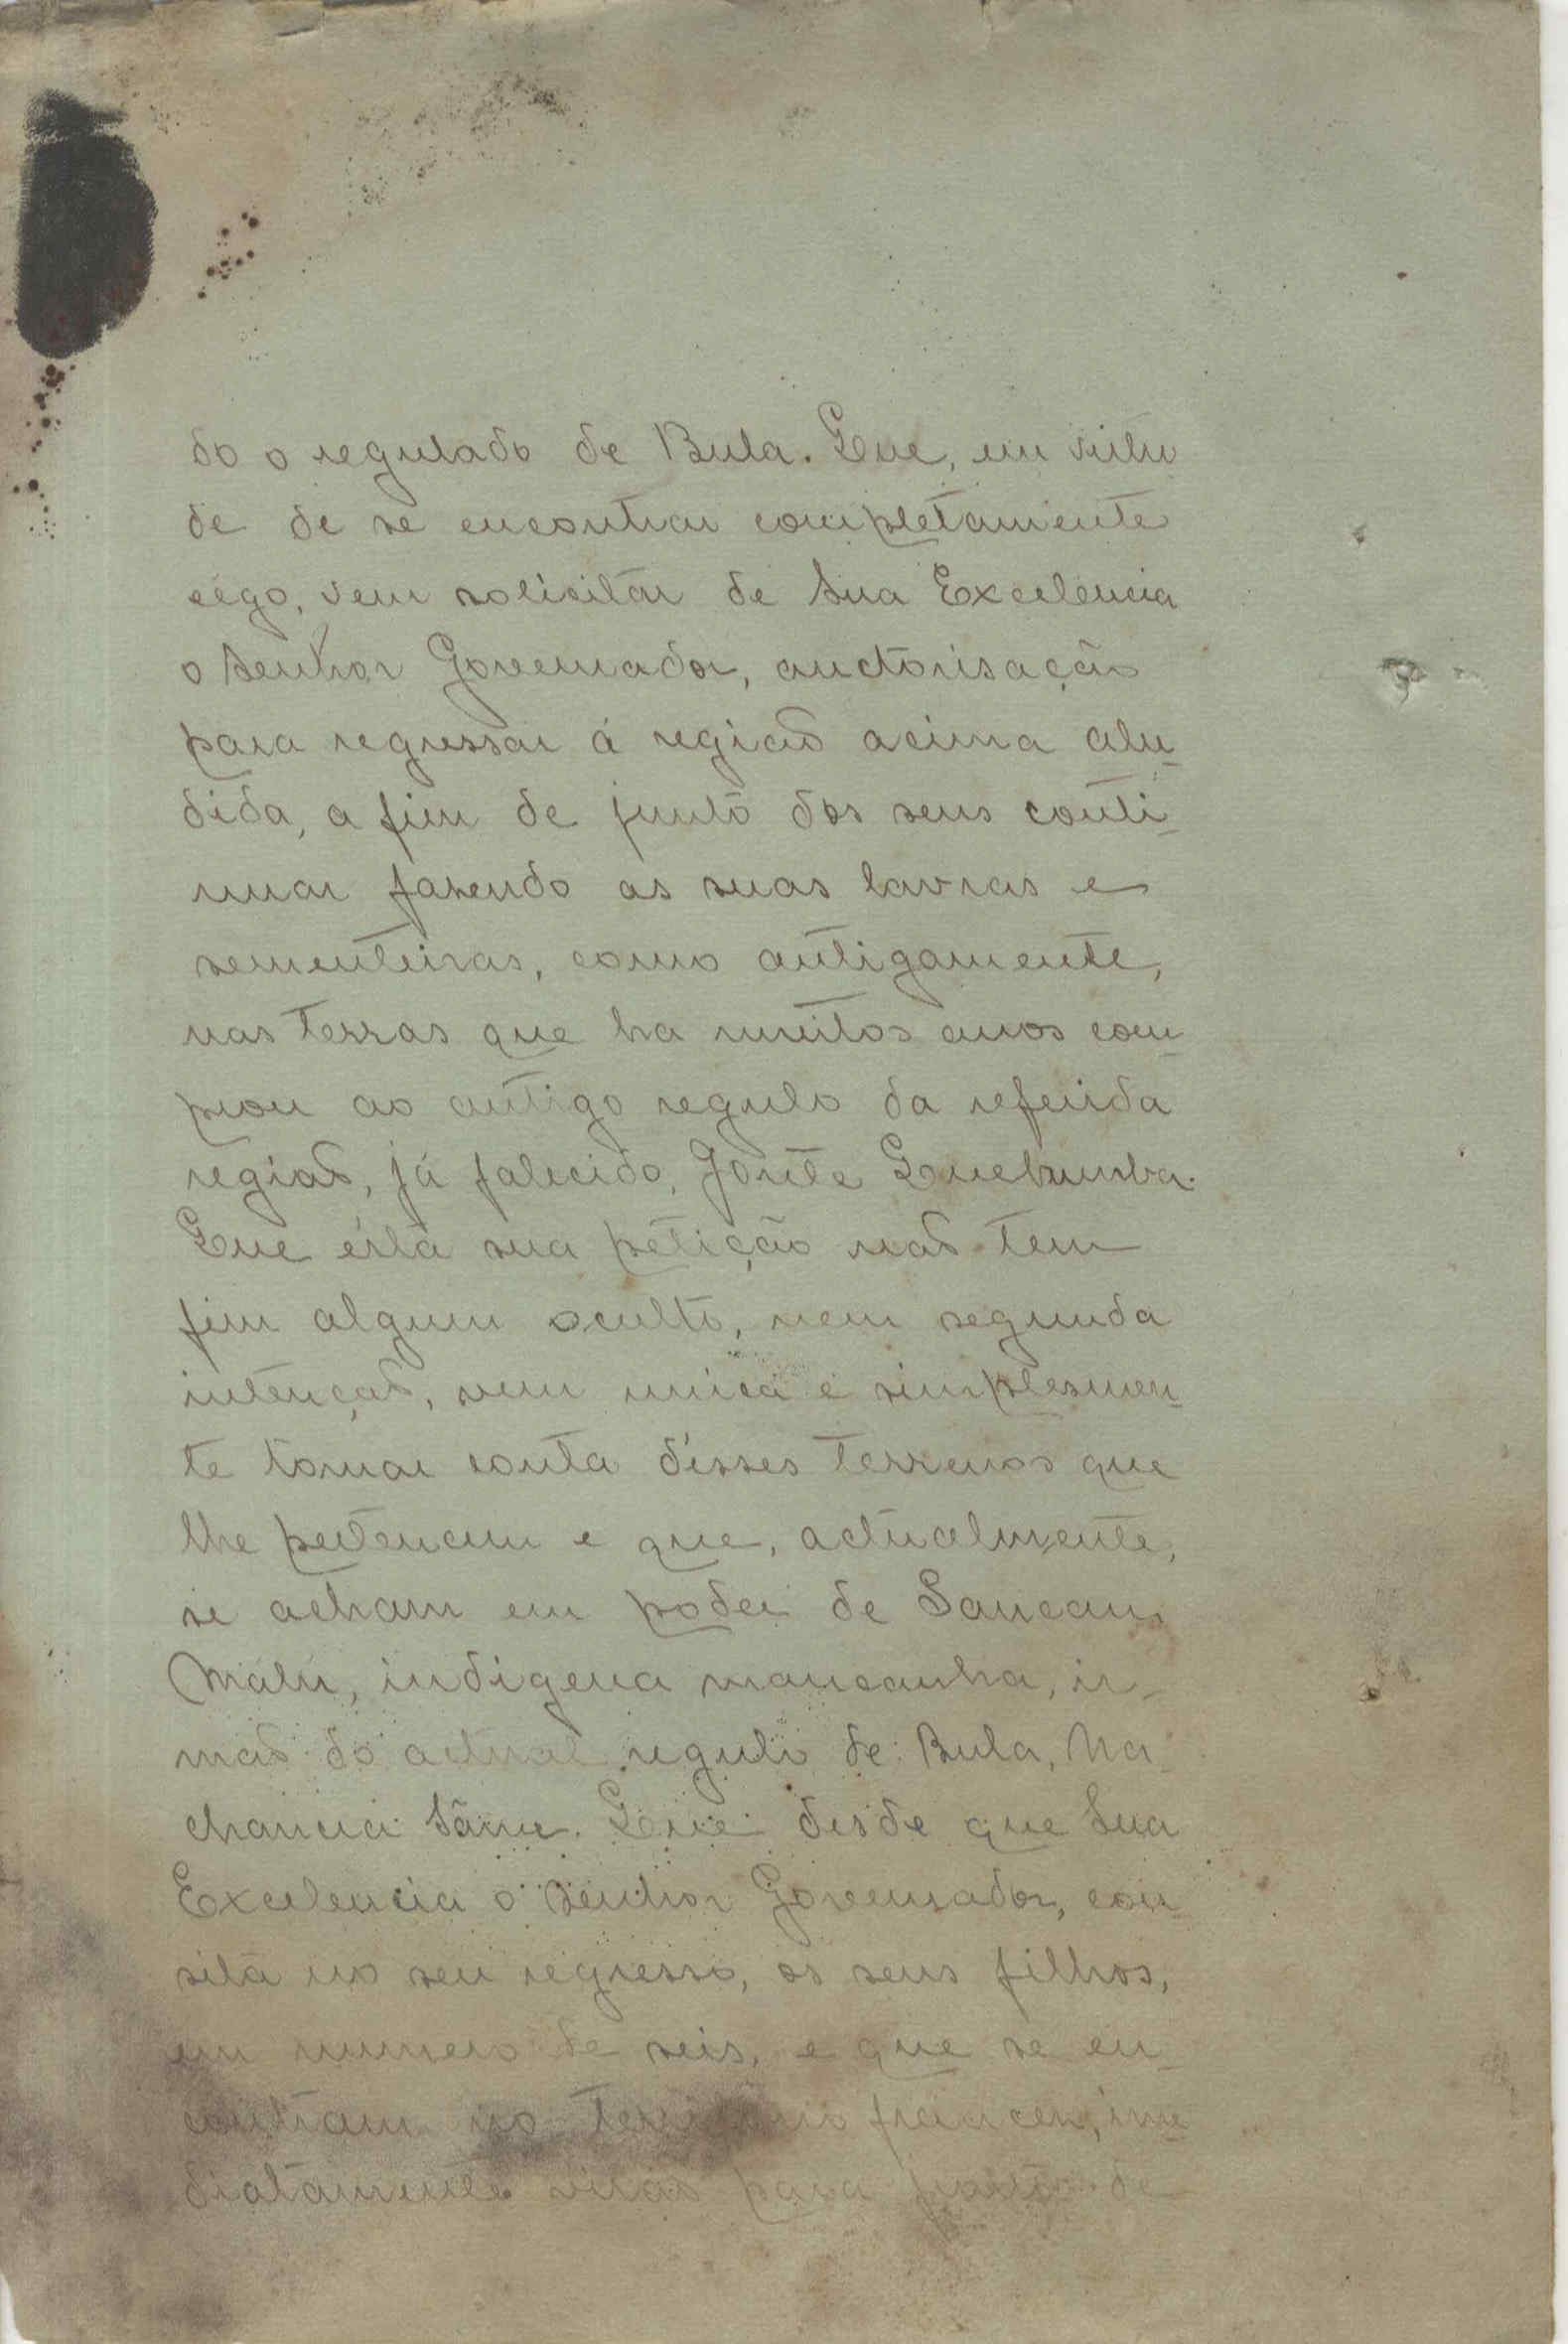 do o regulado de Bula. Que, em virtu
de de se encontrar completamente
cégo, vem solicitar de Sua Excelencia
o Senhor Governador, auctorisação
para regressar á região acima alu-
dida, a fim de junto dos seus conti-
nuar fasendo as suas lavras e
sementeiras, como antigamente,
nas terras que ha muitos anos com-
prou ao antigo regulo da referida
região, já falecido, Jonte Quebumba.
Que ésta sua petição não tem
fim algum oculto, nem segunda
intenção, vem unica e simplesmen-
te tomar conta désses terrenos que
lhe pertencem e que, actualmente,
se acham em poder de Sancam
Malú, indigena mancanha, ir-
mão do actual regulo de Bula, Na
chancia Sãnu. Que desde que Sua
Excelencia o Senhor Governador, con-
sita no seu regresso, os seus filhos,
em numero de seis, e que se en-
contram no territorio francez, ime
diatamente virão para junto de